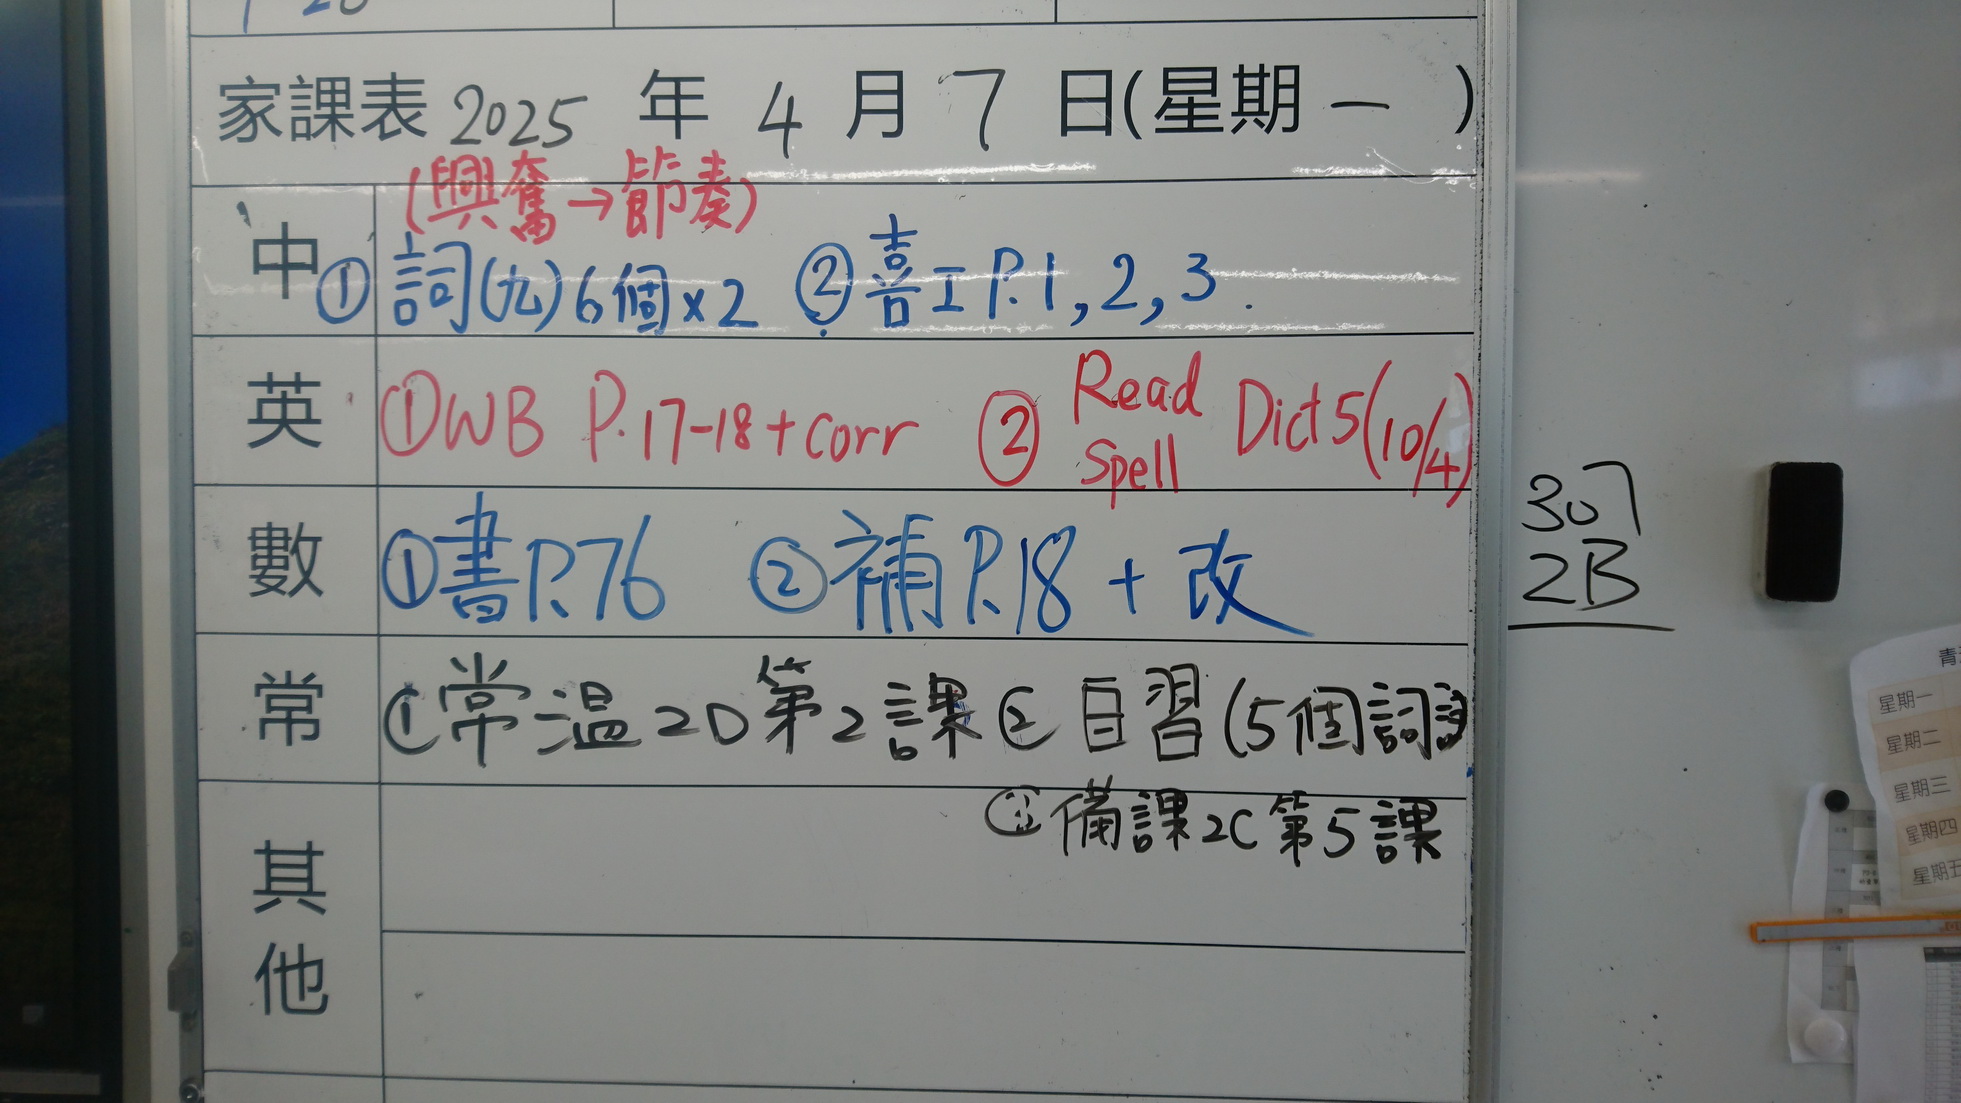 家課表 2025 年 4 月 7 日(星期一 )
(興奮→節奏)
中 ① 詞(九)6個×2 ② 喜工 P.1, 2, 3.
英 ① WB P.17-18+corr ② Read Spell Dict 5(10/4)
數 ① 書P.76 ② 補P.18 + 改
常 ① 常温2D第2課 ② 自習(5個詞語)
③ 備課2C第5課
其他
307
2B
青
星期一
星期二
星期三
星期四
星期五